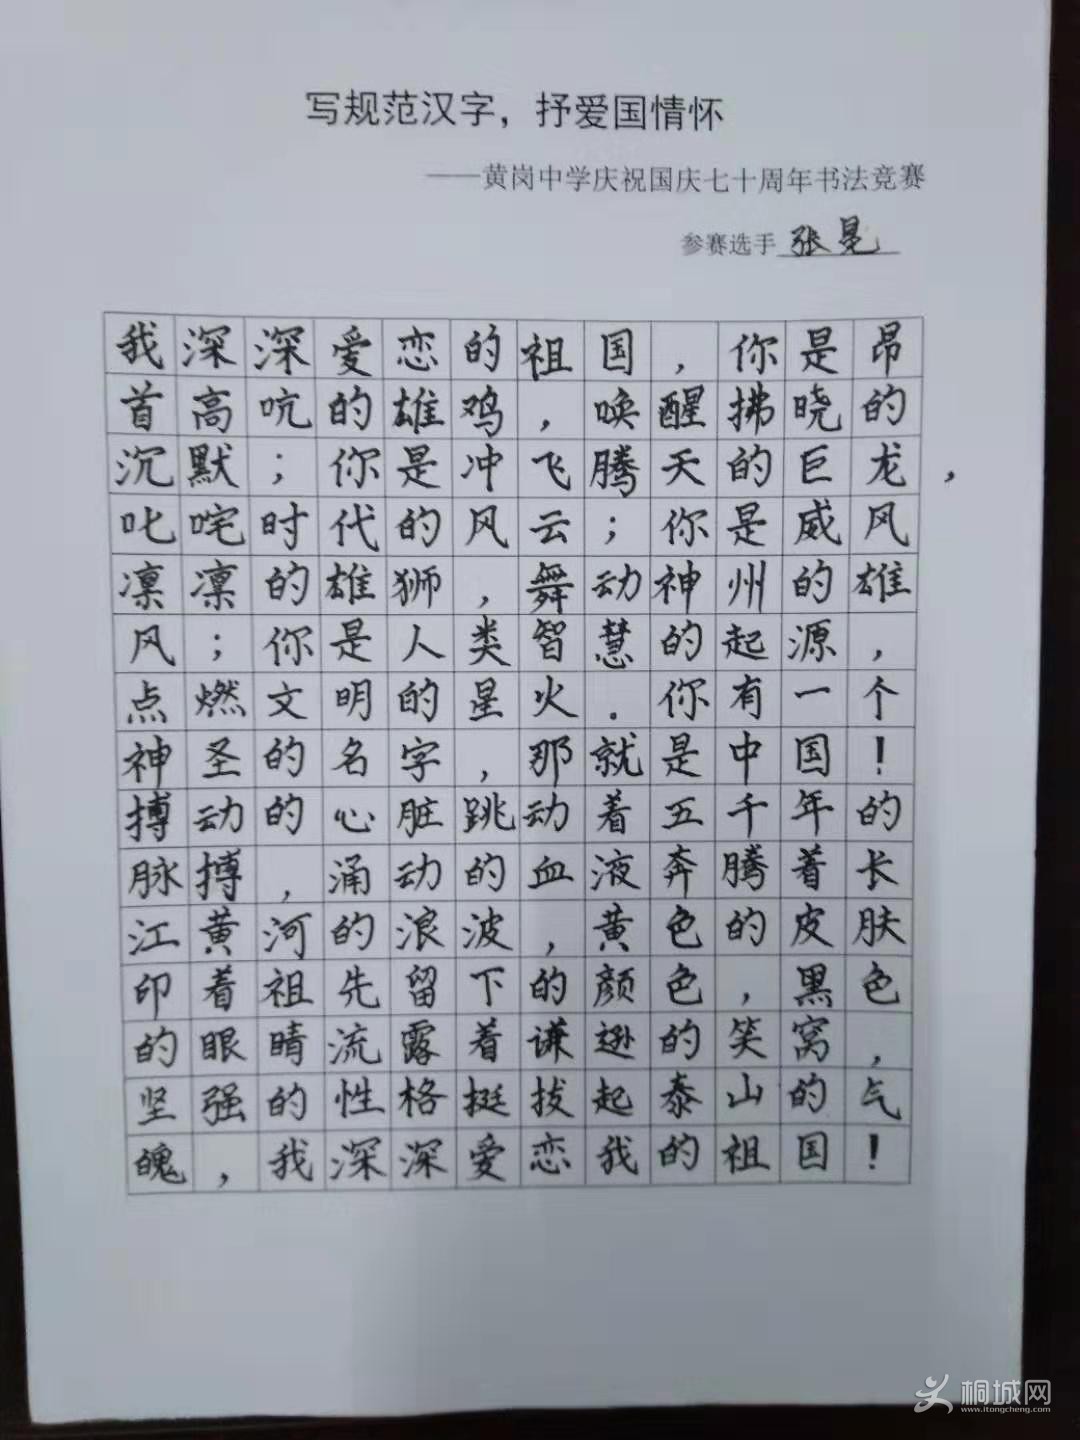 写规范汉字，抒爱国情怀
——黄岗中学庆祝国庆七十周年书法竞赛
参赛选手 张晃
我深深爱恋的祖国，你是昂
首高吭的雄鸡，唤醒拂晓的
沉默；你是冲飞腾天的巨龙，
叱咤时代的风云；你是威风
凛凛的雄狮，舞动神州的雄
风；你是人类智慧的起源，
点燃文明的星火．你有一个
神圣的名字，那就是中国！
搏动的心脏跳动着五千年的
脉搏，涌动的血液奔腾着长
江黄河的浪波，黄色的皮肤
印着祖先留下的颜色，黑色
的眼睛流露着谦逊的笑窝，
坚强的性格挺拔起泰山的气
魄，我深深爱恋我的祖国！
桐城网
www.itongcheng.com